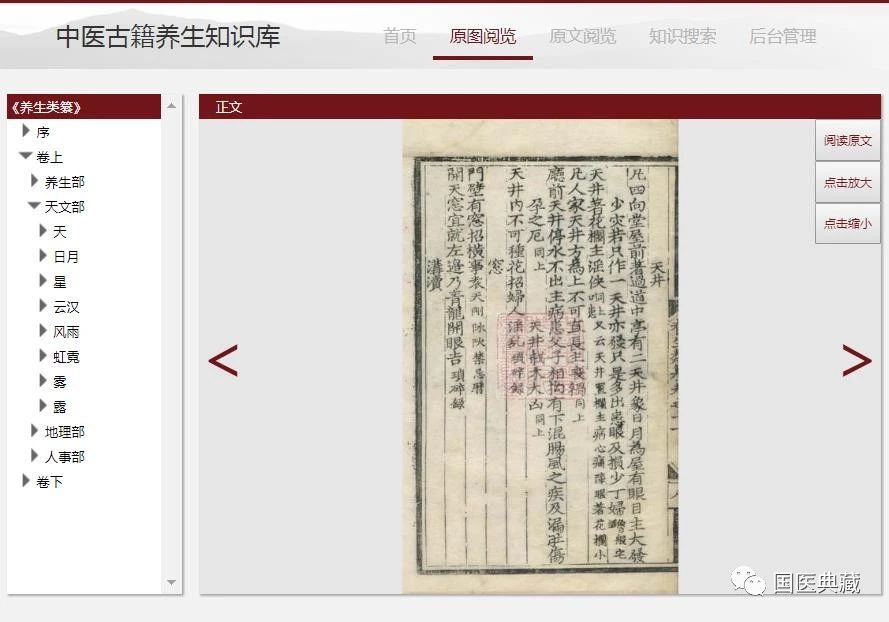 中医古籍养生知识库
首页 原图阅览 原文阅览 知识搜索 后台管理
《养生类纂》
序
卷上
养生部
天文部
天
日月
星
云汉
风雨
虹霓
雾
露
地理部
人事部
卷下
正文
阅读原文
点击放大
点击缩小
天井
凡四向堂屋前著過道中亭有二天井象日月為屋有眼目主大發
少灾若只作一天井亦發只是多出患眼及損少丁婦
天井著花欄主淫佚同上又云天井置欄主病心痛障眼著花欄小
凡人家天井方為上不可直長主喪禍同上
廳前天井停水不出主病患父子相拗有下混腸風之疾及漏胎傷
孕之厄同上 天井栽木大凶同上
天井内不可種花招婦人淫亂瑣碎録
窓
門壁有窓招横事袁天剛陰陽禁忌曆
開天窓宜就左邊乃青龍開眼吉瑣碎録
溝瀆
国医典藏